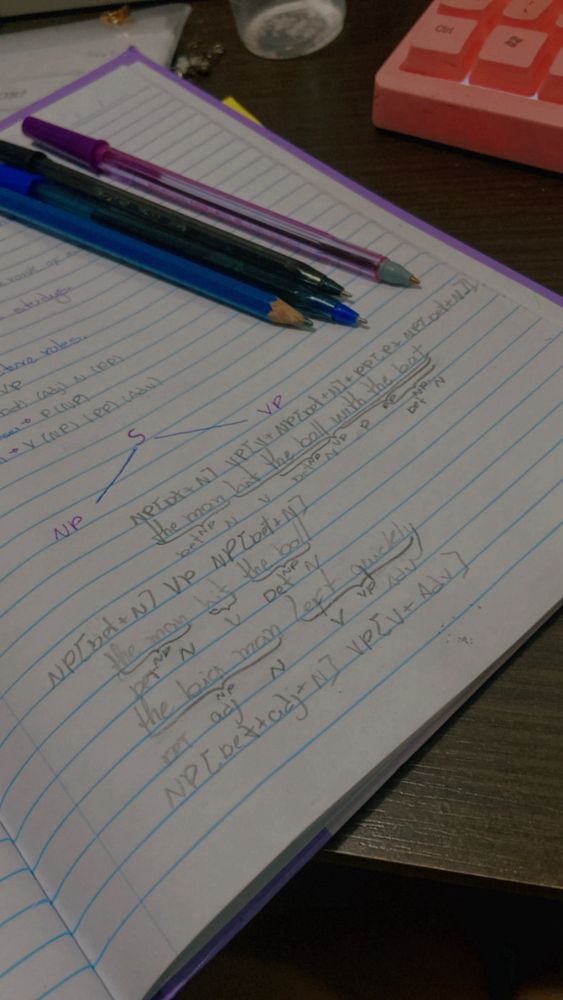 Ctrl
study.
rules.
VP
(adj) N (PP)
P (NP)
V (NP) (PP) (Adv)
S
VP
NP
NP[Det+N] VP[V+ NP[Det+N]+ PP[P+ NP[Det+N]]]
the man hit the ball with the bat
Det NP N V Det NP N VP P NP Det NP N
NP[Det+N] VP NP[Det+N]
the man hit the ball
Det NP N V Det NP N
the big man left quickly
Det adj NP N V VP Adv
NP[Det+adj+N] VP[V+ Adv]